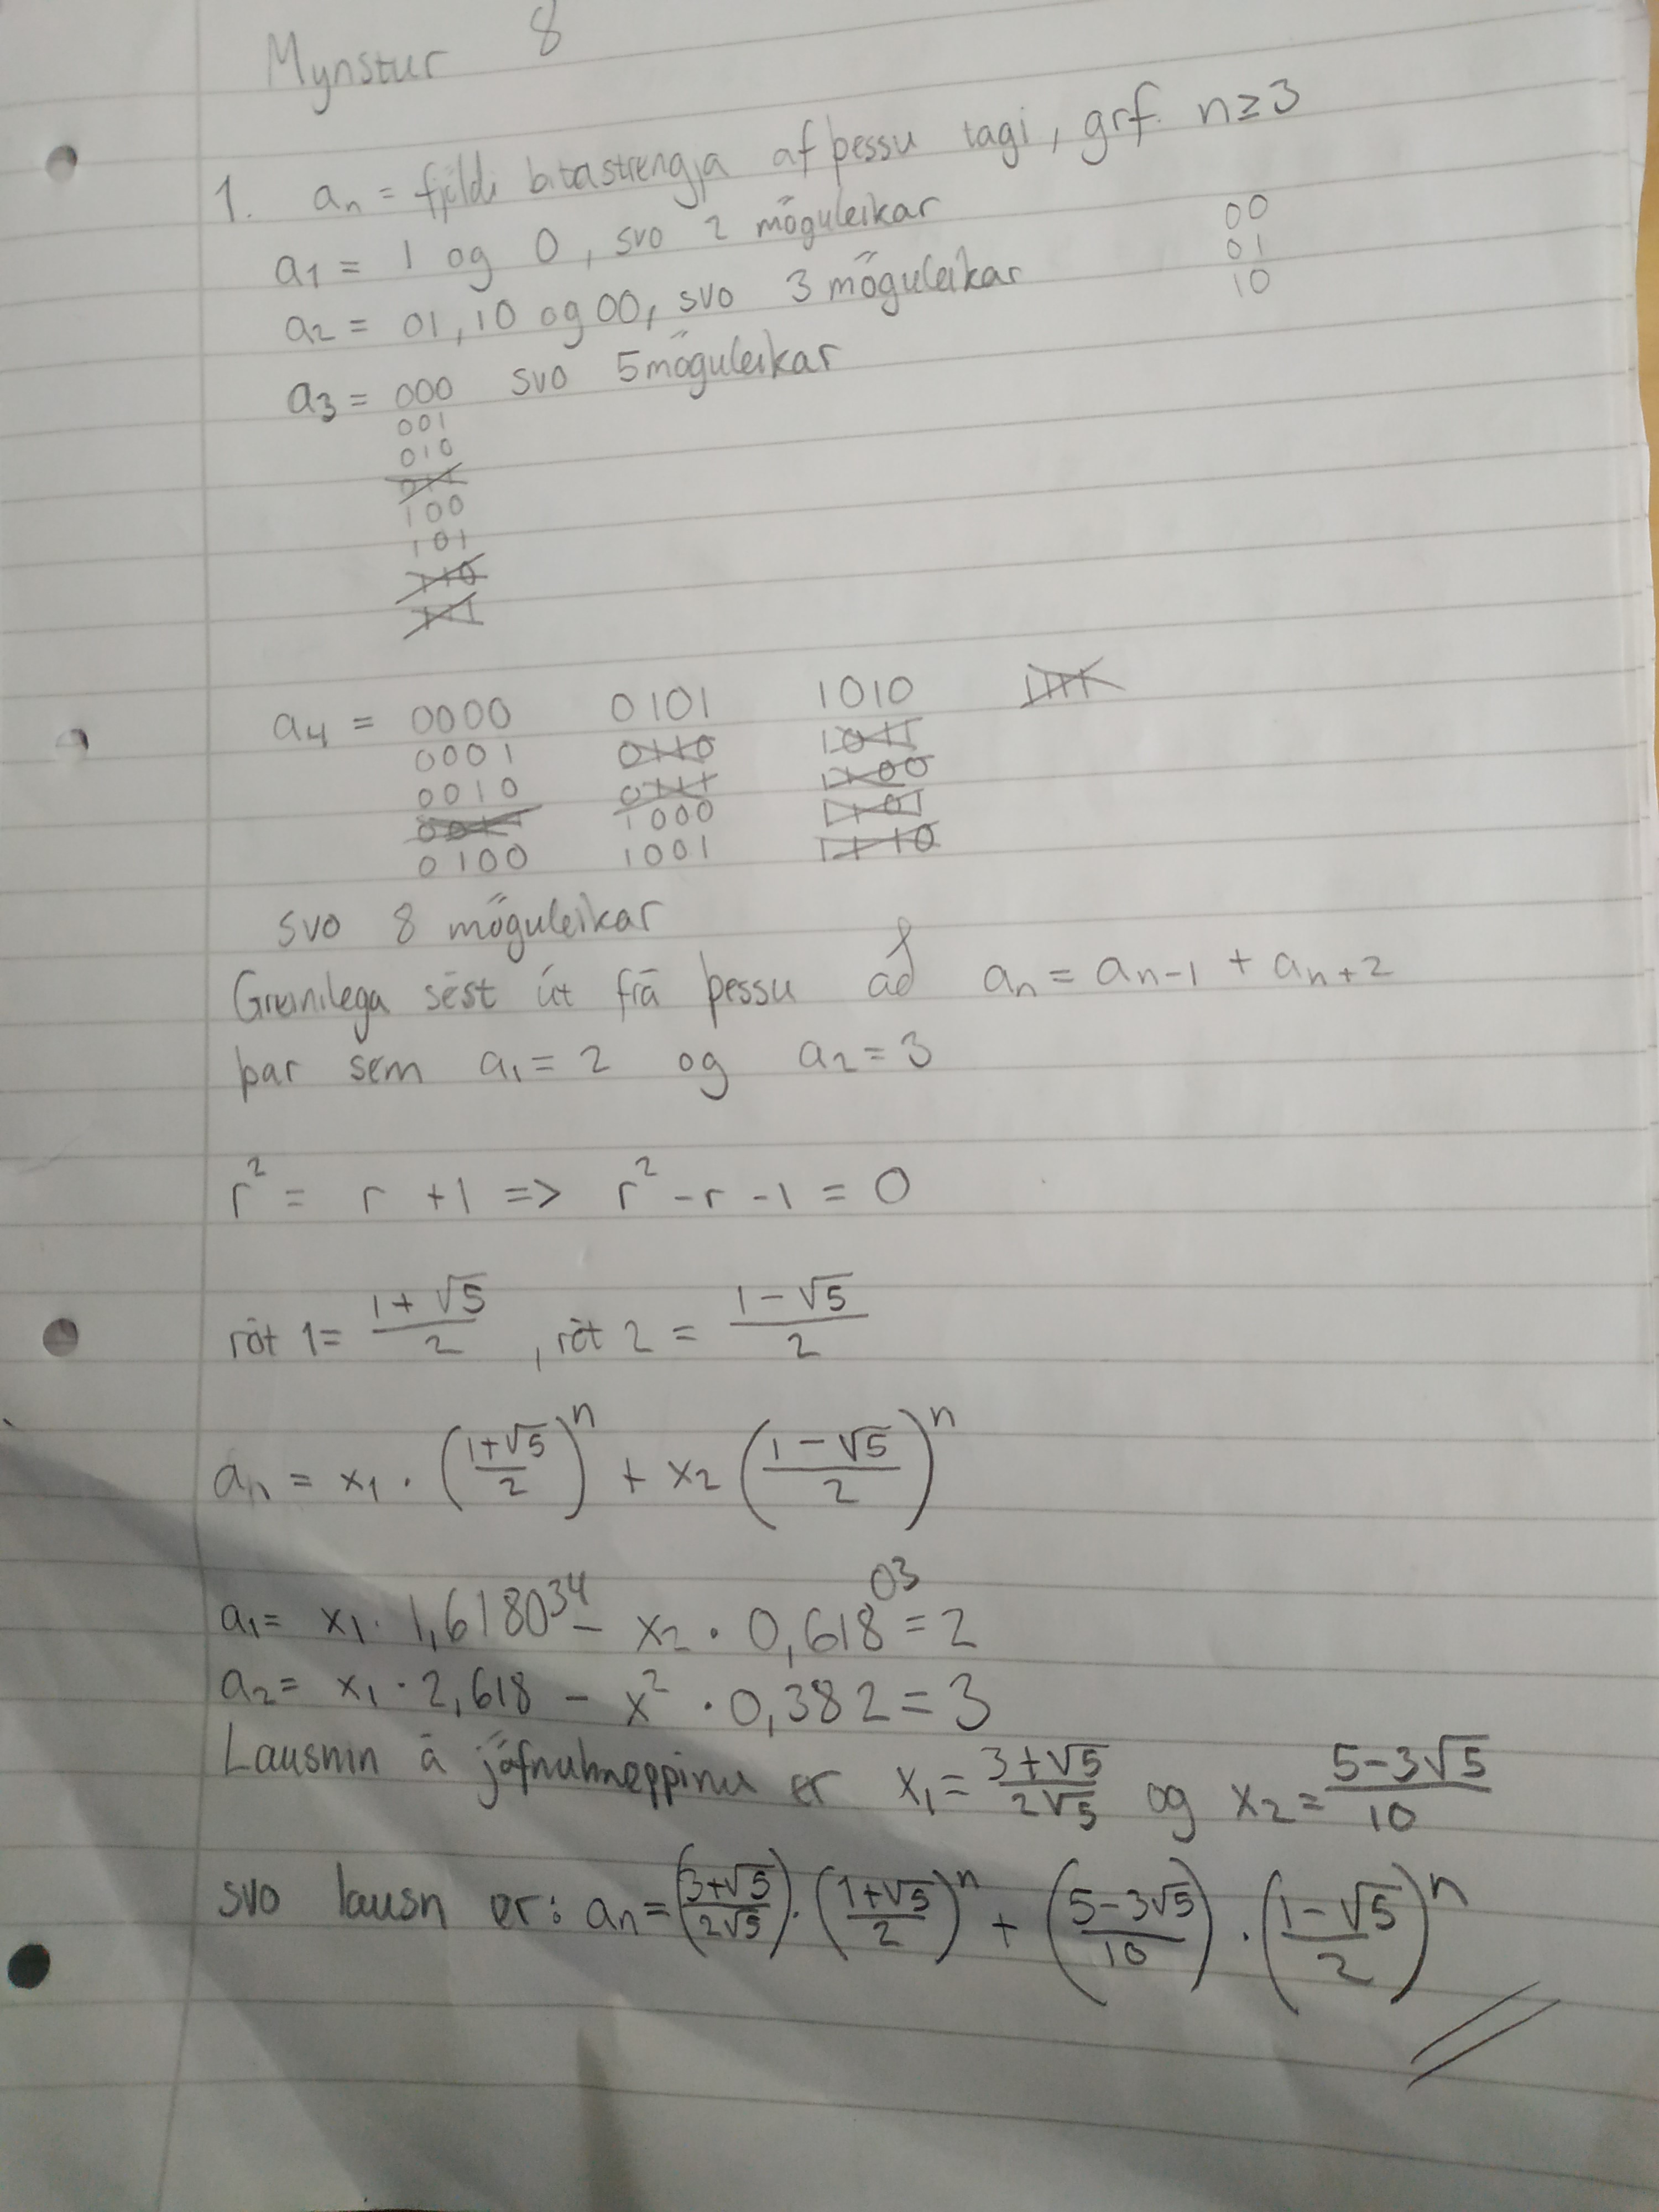 Mynstur 8
1. an = fjöldi bitastrengja af þessu tagi, grf. n≥3
a1 = 1 og 0, svo 2 möguleikar
00
01
10
a2 = 01, 10 og 00, svo 3 möguleikar
a3 = 000 svo 5 möguleikar
001
010
011
100
101
110
111
a4 = 0000 0101 1010 1111
0001 0110 1011
0010 0111 1100
0011 1000 1101
0100 1001 1110
svo 8 möguleikar
Greinilega sést út frá þessu að an = an-1 + an+2
þar sem a1 = 2 og a2 = 3
r² = r + 1 => r² - r - 1 = 0
rót 1 = (1+√5)/2, rót 2 = (1-√5)/2
an = x1 · ((1+√5)/2)^n + x2 ((1-√5)/2)^n
a1 = x1 · 1,618034 - x2 · 0,61803 = 2
a2 = x1 · 2,618 - x² · 0,382 = 3
Lausnin á jöfnuhneppinu er x1 = (3+√5)/(2√5) og x2 = (5-3√5)/10
svo lausn er: an = ((3+√5)/(2√5)) · ((1+√5)/2)^n + ((5-3√5)/10) · ((1-√5)/2)^n